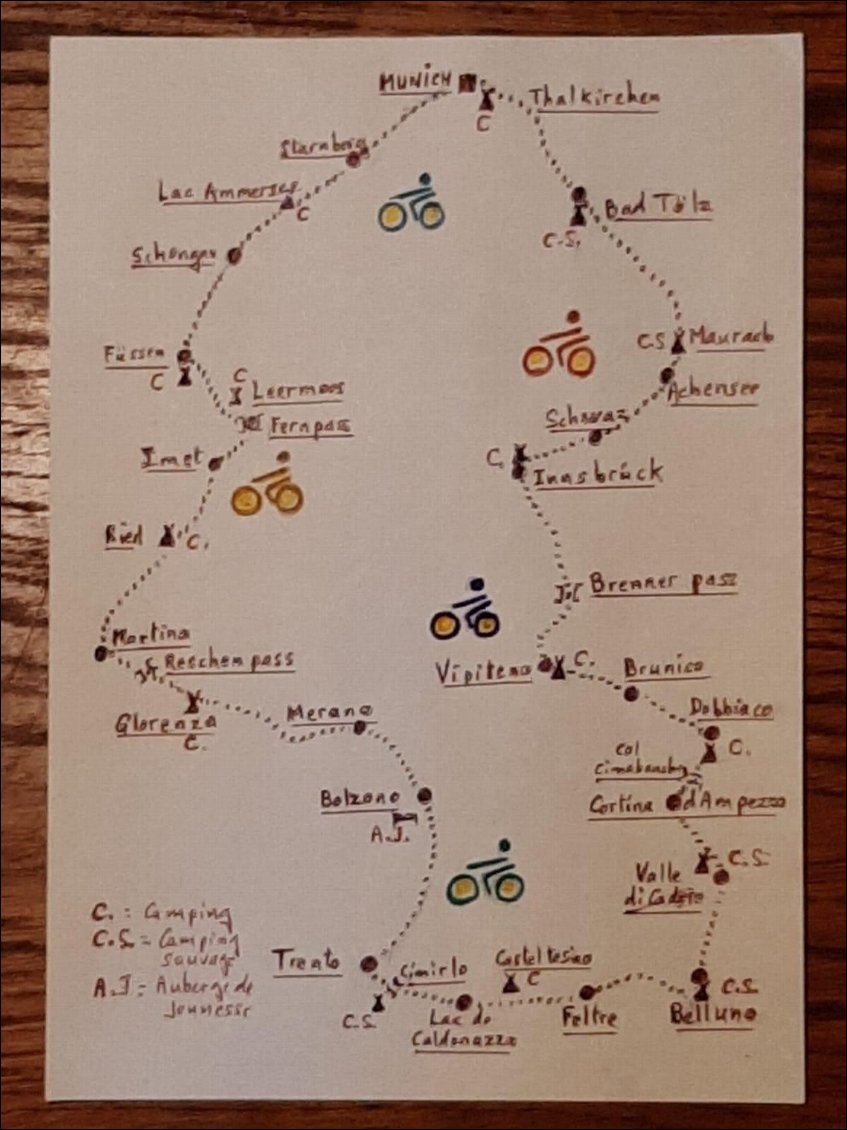 MUNICH
Thalkirchen
C
Starnberg
Lac Ammersee
C
Bad Tölz
C.S.
Schongau
Füssen
C
C
Leermoos
Fernpass
C.S
Maurach
Achensee
Schwaz
Imst
C.
Innsbrück
Ried
C.
Brenner pass
Martina
Reschen pass
Vipiteno
C.
Brunico
Glorenza
C.
Merano
Dobbiaco
C.
Col
Cimabanche
Cortina d'Ampezzo
Bolzano
A.J.
C.S.
Valle
di Cadore
C. = Camping
C.S. = Camping
sauvage
A.J = Auberge de
Jeunesse
Trento
Cimirlo
Casteltesino
C
C.S.
C.S.
Lac de
Caldonazzo
Feltre
Belluno